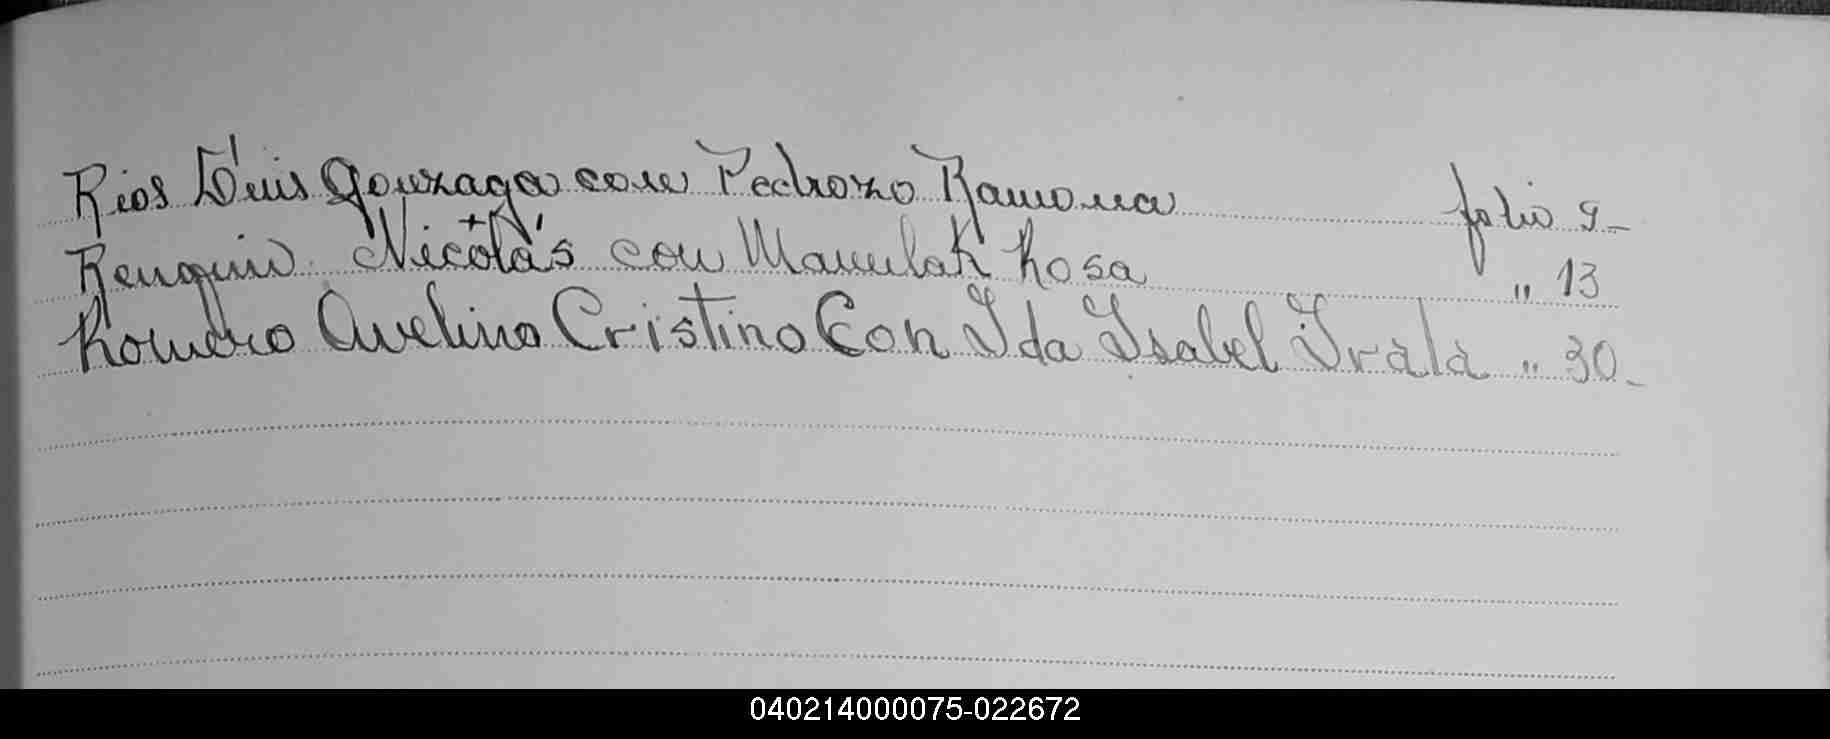 Rios Luis Gonzaga con Pedrozo Ramona folio 9-
Renquin Nicolás con Manulak Rosa " 13
Romero Avelino Cristino Con Ida Isabel Irala " 30-
040214000075-022672